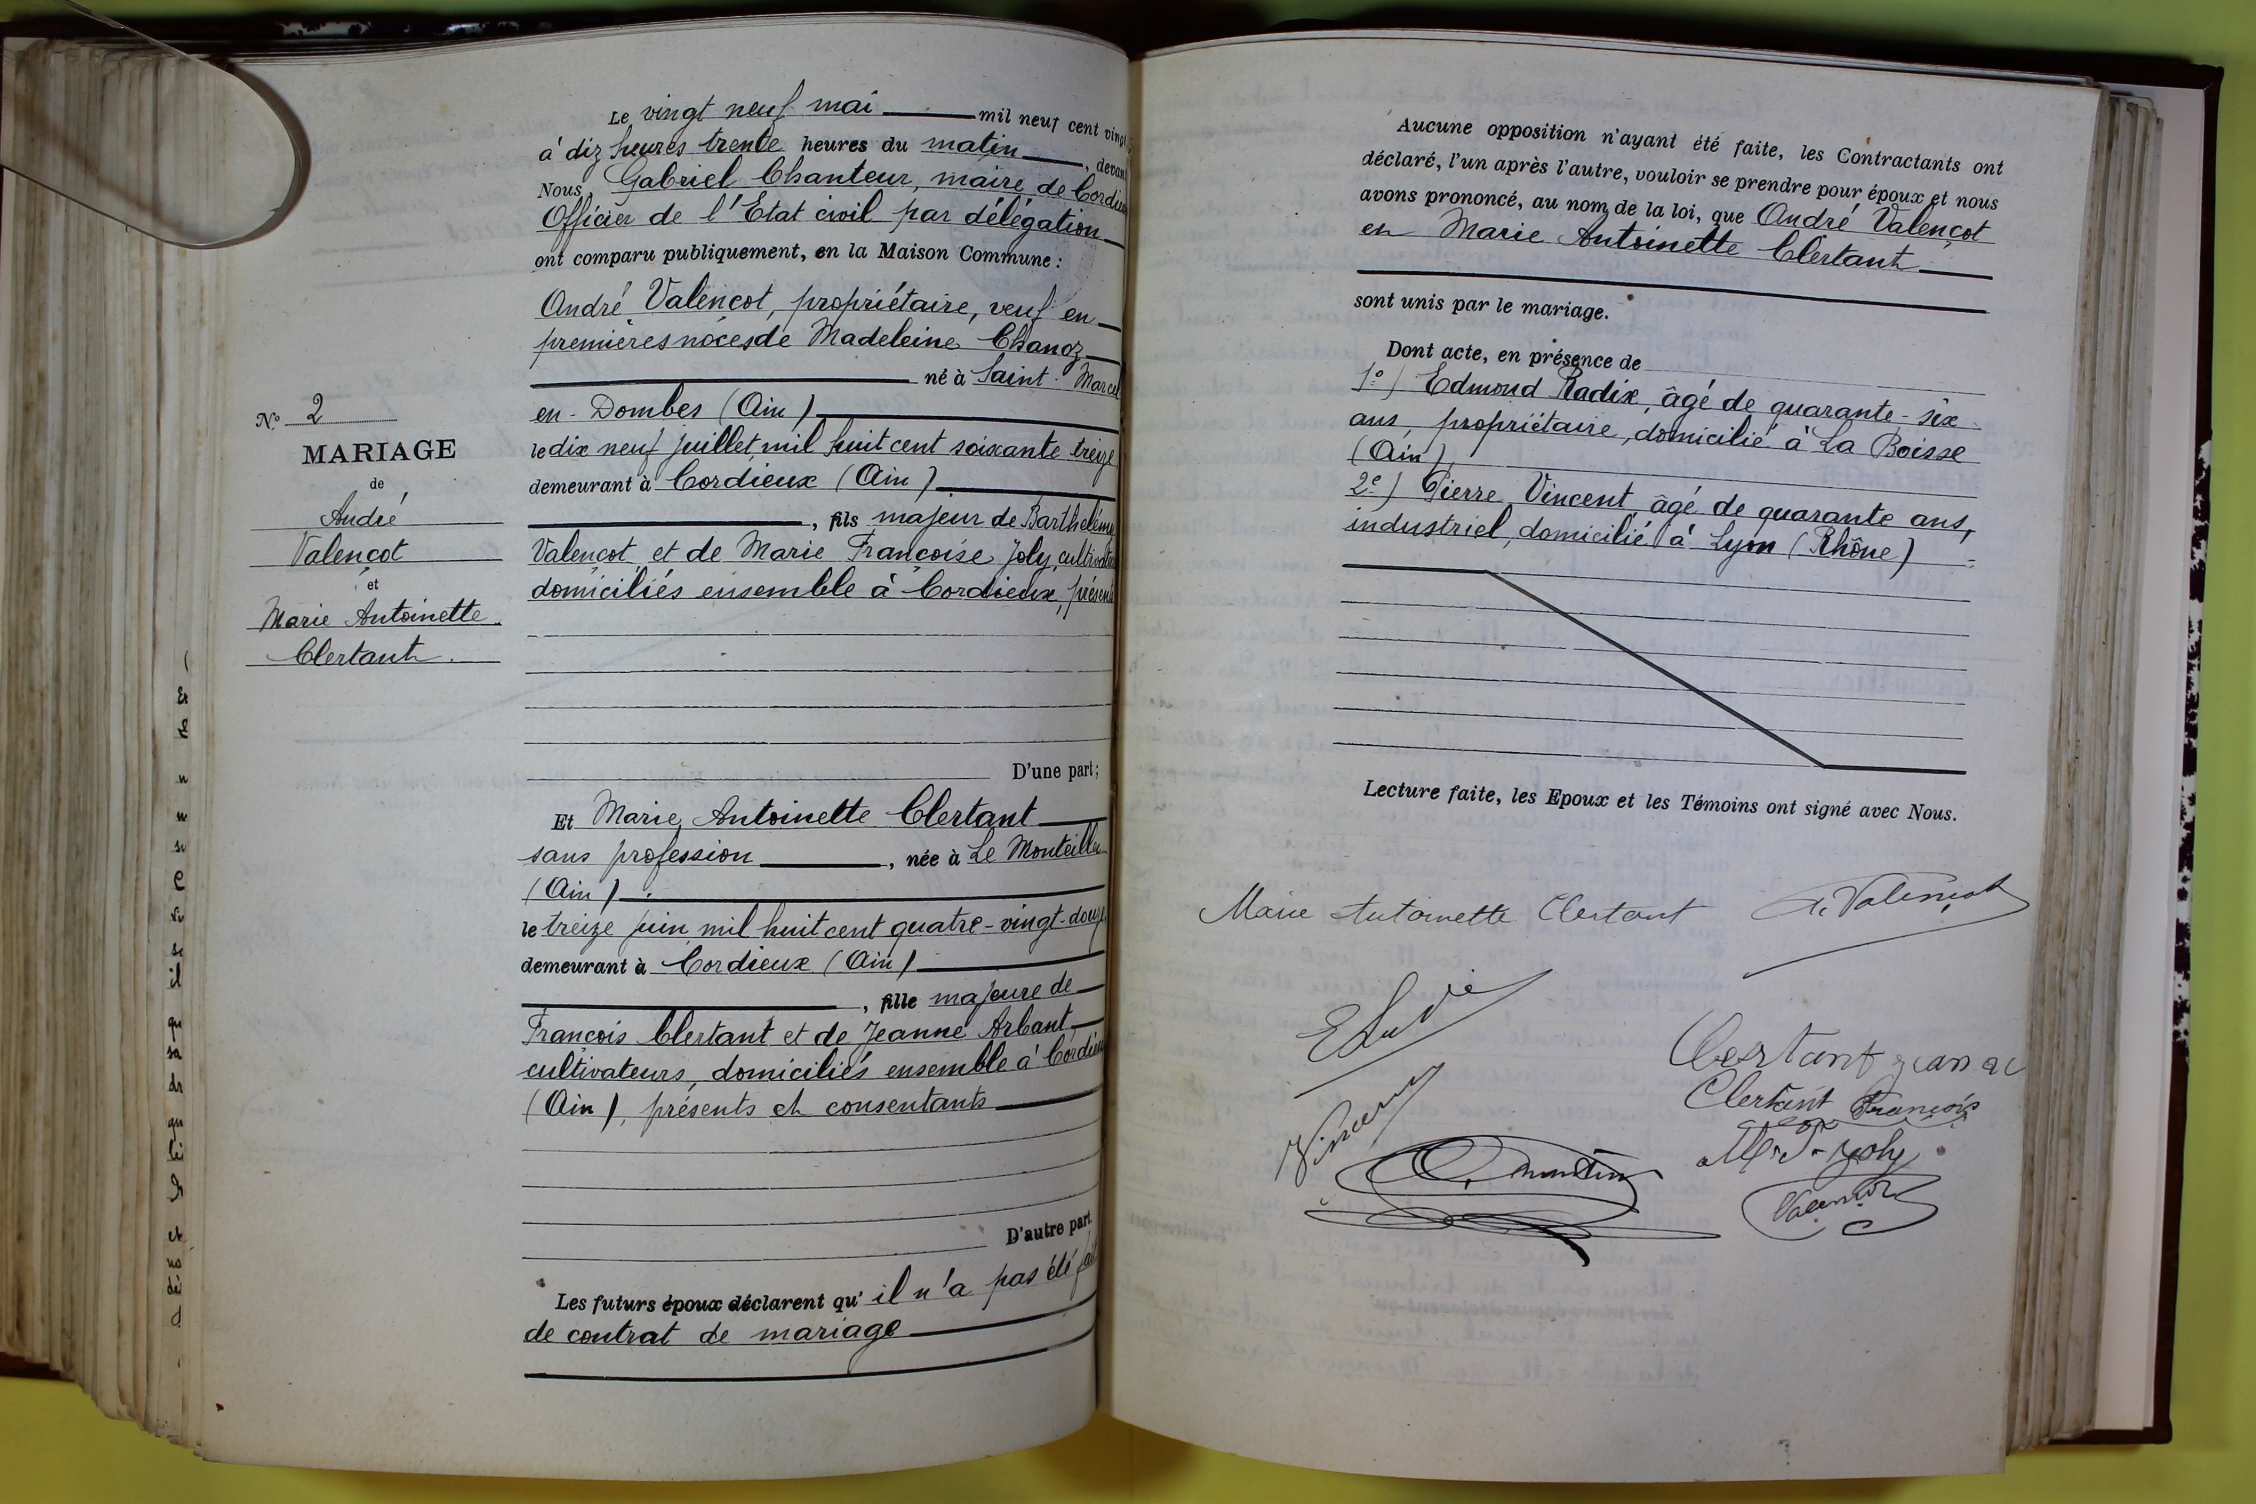 Le vingt neuf mai mil neuf cent vingt
à dix heures trente heures du matin, devant
Nous, Gabriel Chanteur, maire de Cordieux
Officier de l'Etat civil par délégation
ont comparu publiquement, en la Maison Commune :
André Valençot, propriétaire, veuf en
premières noces de Madeleine Chanoz
né à Saint-Marcel
en-Dombes (Ain)
le dix neuf juillet mil huit cent soixante treize
demeurant à Cordieux (Ain)
, fils majeur de Barthélémy
Valençot et de Marie Françoise Joly, cultivateurs
domiciliés ensemble à Cordieux,
D'une part ;
N° 2
MARIAGE
de
André
Valençot
et
Marie Antoinette
Clertant.
Et Marie Antoinette Clertant
sans profession, née à Le Montellier
(Ain).
le treize juin mil huit cent quatre-vingt-douze
demeurant à Cordieux (Ain)
, fille majeure de
François Clertant et de Jeanne Arbant
cultivateurs, domiciliés ensemble à Cordieux
(Ain), présents et consentants
D'autre part.
Les futurs époux déclarent qu'il n'a pas été fait
de contrat de mariage
Aucune opposition n'ayant été faite, les Contractants ont
déclaré, l'un après l'autre, vouloir se prendre pour époux et nous
avons prononcé, au nom de la loi, que André Valençot
et Marie Antoinette Clertant
sont unis par le mariage.
Dont acte, en présence de
1°) Edmond Radix, âgé de quarante-six
ans, propriétaire, domicilié à La Boisse
(Ain)
2°) Pierre Vincent, âgé de quarante ans,
industriel, domicilié à Lyon (Rhône)
Lecture faite, les Epoux et les Témoins ont signé avec Nous.
Marie Antoinette Clertant A. Valençot
Clertant
Clertant François
Vincent
M. F. Joly
Valençot